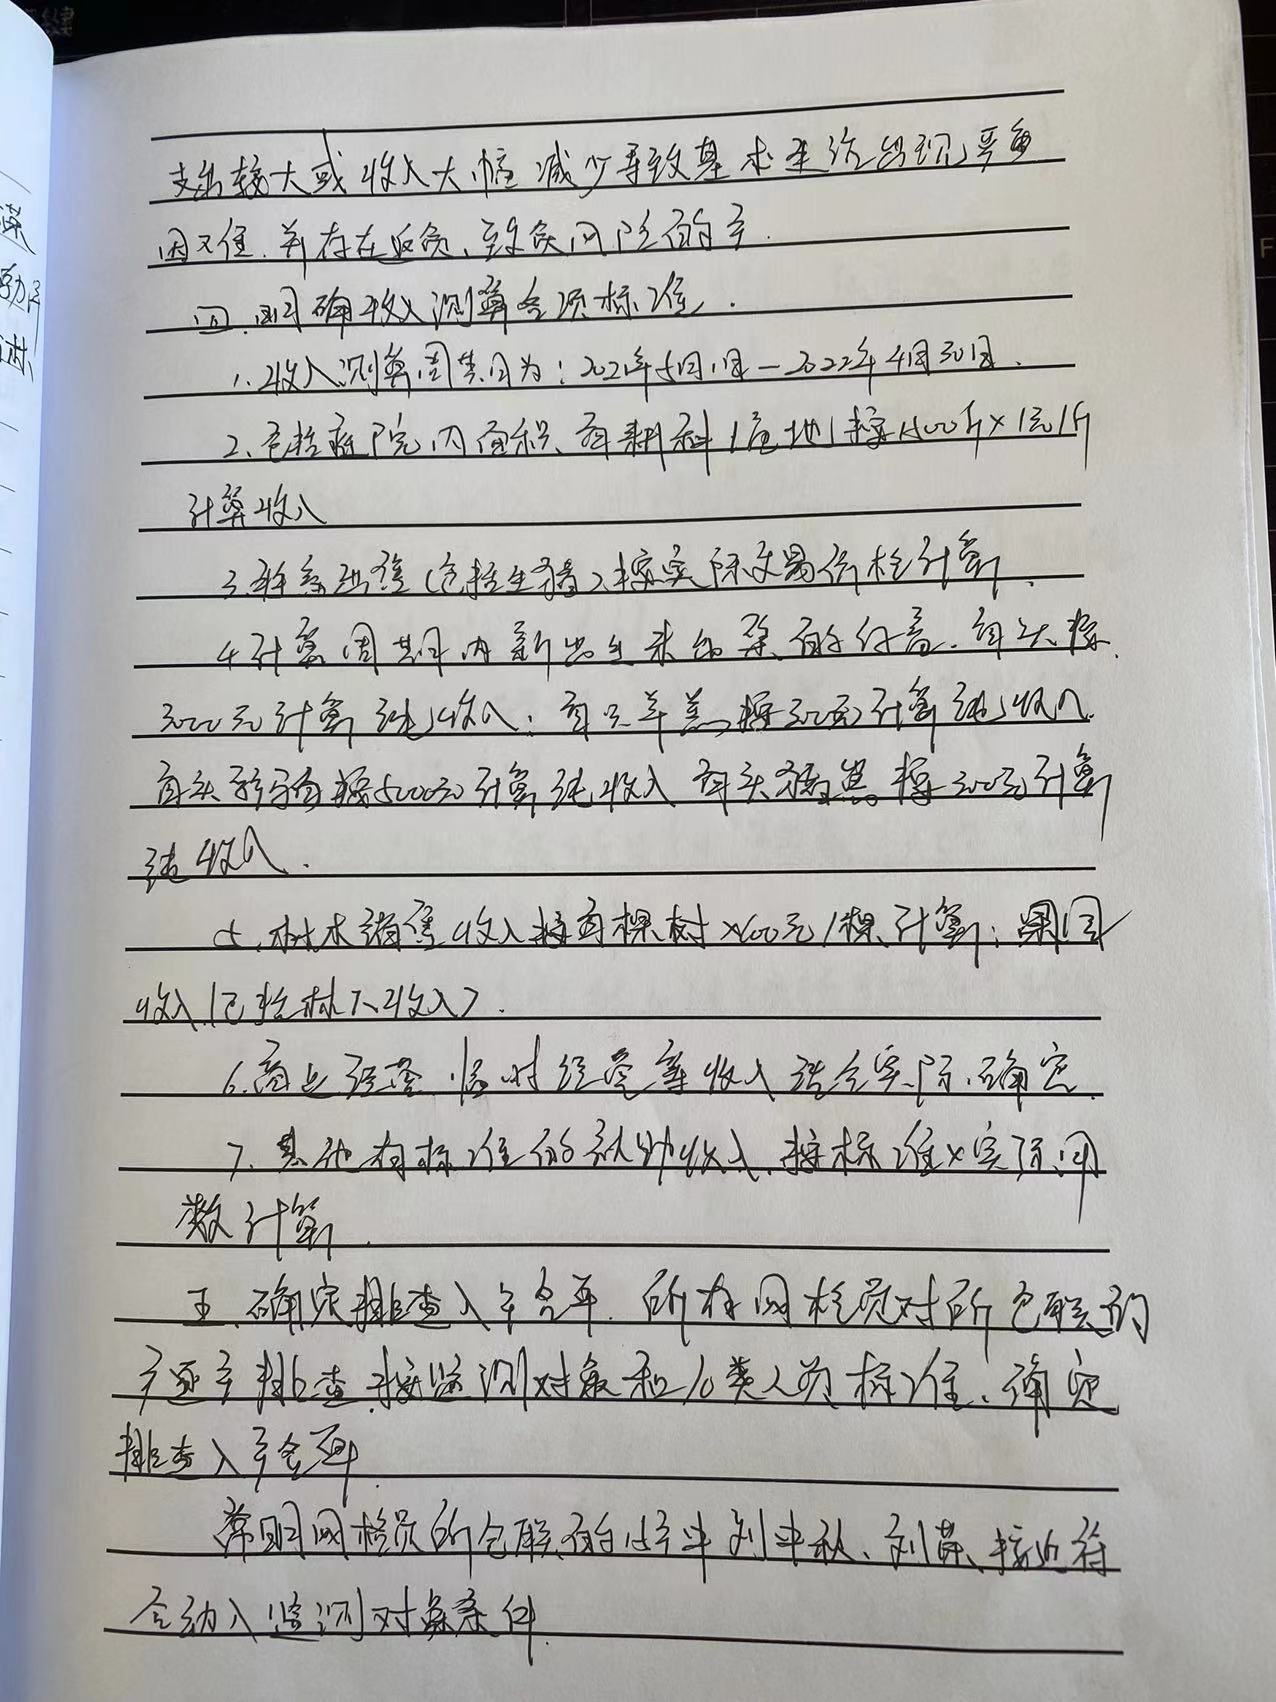 支出较大或收入大幅减少导致基本生活出现严重
困难,并存在返贫、致贫风险的户.
四.明确收入测算各项标准.
1.收入测算周期为:2021年5月1日—2022年4月30日.
2.包括庭院内面积、每耕种1亩地,按1500斤×1元/斤
计算收入
3.牲畜出售(包括生猪)按实际交易价格计算.
4.计算周期内新出生未出栏的仔畜.每头按
3000元计算纯收入;每只羊羔按300元计算纯收入.
每头 按5000元计算纯收入 每头猪崽按300元计算
纯收入.
5.树木销售收入按每棵树×100元/棵计算;果园
收入(包括林下收入).
6.商业经营、临时经营等收入结合实际确定.
7.其他有标准的 收入,按标准×实际
数计算.
五.确定排查入户名单.所有网格员对所包联的
户逐户排查,按监测对象和10类人员标准、确定
排查入户名单
常明网格员所包联的15户中刘中秋、刘荣、接近符
合纳入监测对象条件.